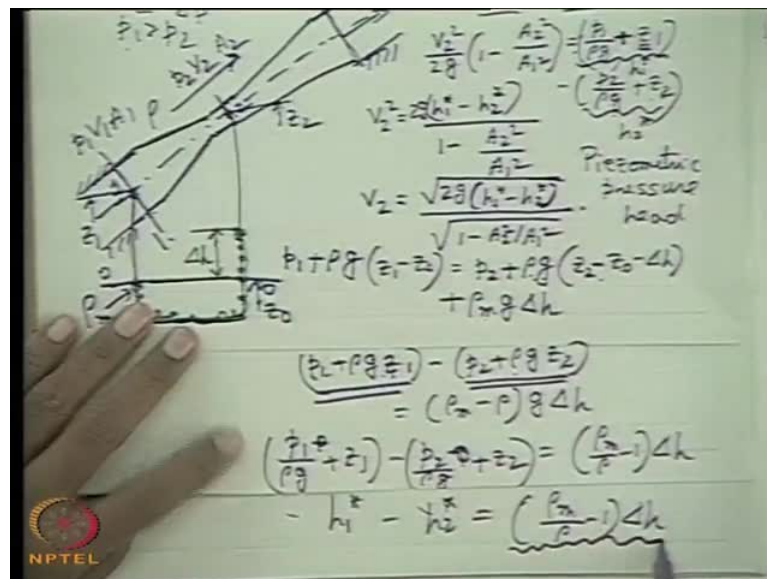 p₁ > p₂
p₂ V₂ A₂
p₁ V₁ A₁ ρ
z₂
z₁
Δh
O O
ρₘ
z₀
V₂²/2g (1 - A₂²/A₁²) = (p₁/ρg + z₁)
h₁*
- (p₂/ρg + z₂)
h₂*
V₂² = 2g(h₁* - h₂*) / 1 - A₂²/A₁²
Piezometric
pressure
head
V₂ = √2g(h₁* - h₂*) / √1 - A₂²/A₁² .
p₁ + ρg(z₁ - z₀) = p₂ + ρg(z₂ - z₀ - Δh)
+ ρₘ g Δh
(p₁ + ρg z₁) - (p₂ + ρg z₂)
= (ρₘ - ρ) g Δh
(p₁/ρg + z₁) - (p₂/ρg + z₂) = (ρₘ/ρ - 1) Δh
- h₁* - h₂* = (ρₘ/ρ - 1) Δh
NPTEL